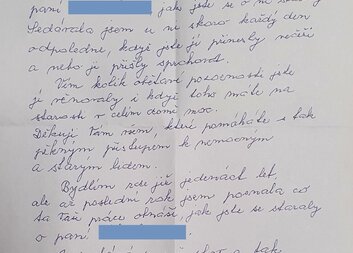 paní jak jste se o ni staraly
Sedávala jsem u ní skoro každý den
odpoledne, když jste jí přinesly večeři
a nebo jí přišly sprchovat.
Vím kolik obětavé pozornosti jste
jí věnovaly i když toho máte na
starosti v celém domě moc.
Děkuji Vám všem, které pomáháte s tak
pěkným přístupem k nemocným
a starým lidem.
Bydlím zde již jedenáct let,
ale až poslední rok jsem poznala co
ta Vaše práce obnáší, jak jste se staraly
o paní .
a tak